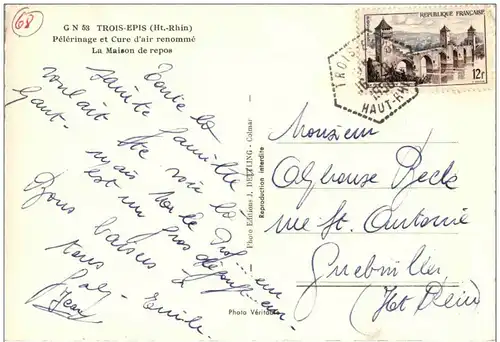 68
G N 53 TROIS-EPIS (Ht.-Rhin)
Pélérinage et Cure d'air renommé
La Maison de repos
Toute la
sainte famille
voulait te voir là
haut.
mais
est un gros
Bons baisers
tous
Jean
Emile
Photo Editions J. DETTLING - Colmar
Reproduction interdite
Photo Véritable
REPUBLIQUE FRANÇAISE
12F
TROIS
HAUT-RH
Monsieur
Alphonse Beck
rue St. Antoine
Guebwiller
(Ht Rhin)